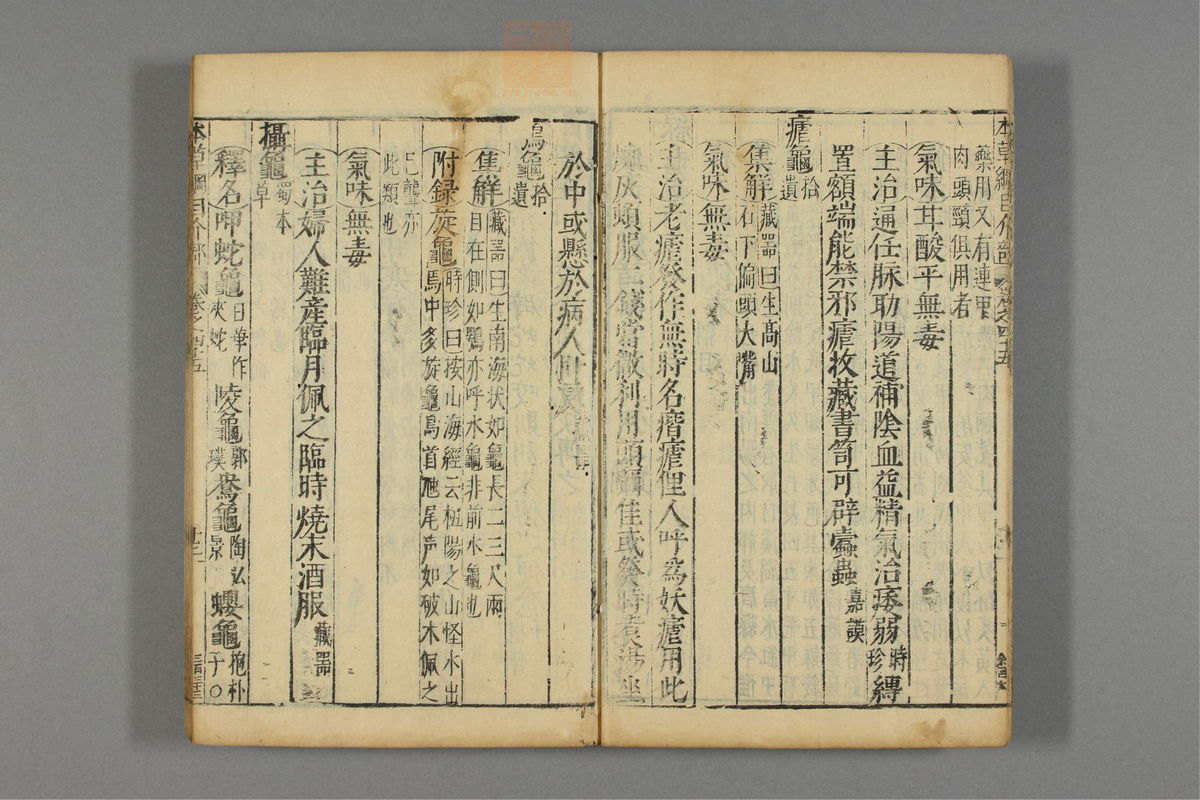 藥用又有連甲
肉頭頸俱用者
氣味甘酸平無毒
主治通任脉助陽道補陰血益精氣治痿弱時珍縛
置額端能禁邪瘧收藏書笥可辟蠹蟲嘉謨
瘧龜拾遺
集解藏器曰生高山
石下偏頭大嘴
氣味無毒
主治老瘧發作無時名瘖瘧俚人呼為妖瘧用此
燒灰頓服二錢當微利用頭彌佳或發時煮湯坐
於中或懸於病人臥處
鴞龜拾遺
集解藏器曰生南海状如龜長二三尺兩
目在側如鴞亦呼水龜非前水龜也
附録旋龜時珍曰按山海經云杻陽之山怪水出
焉中多旋龜鳥首虺尾声如破木佩之
已聾亦
此類也
氣味無毒
主治婦人難産臨月佩之臨時燒末酒服藏器
攝龜蜀本草
釋名呷蛇龜日華作
夾蛇
陵龜郭璞鴦龜陶弘景蠳龜抱朴子○